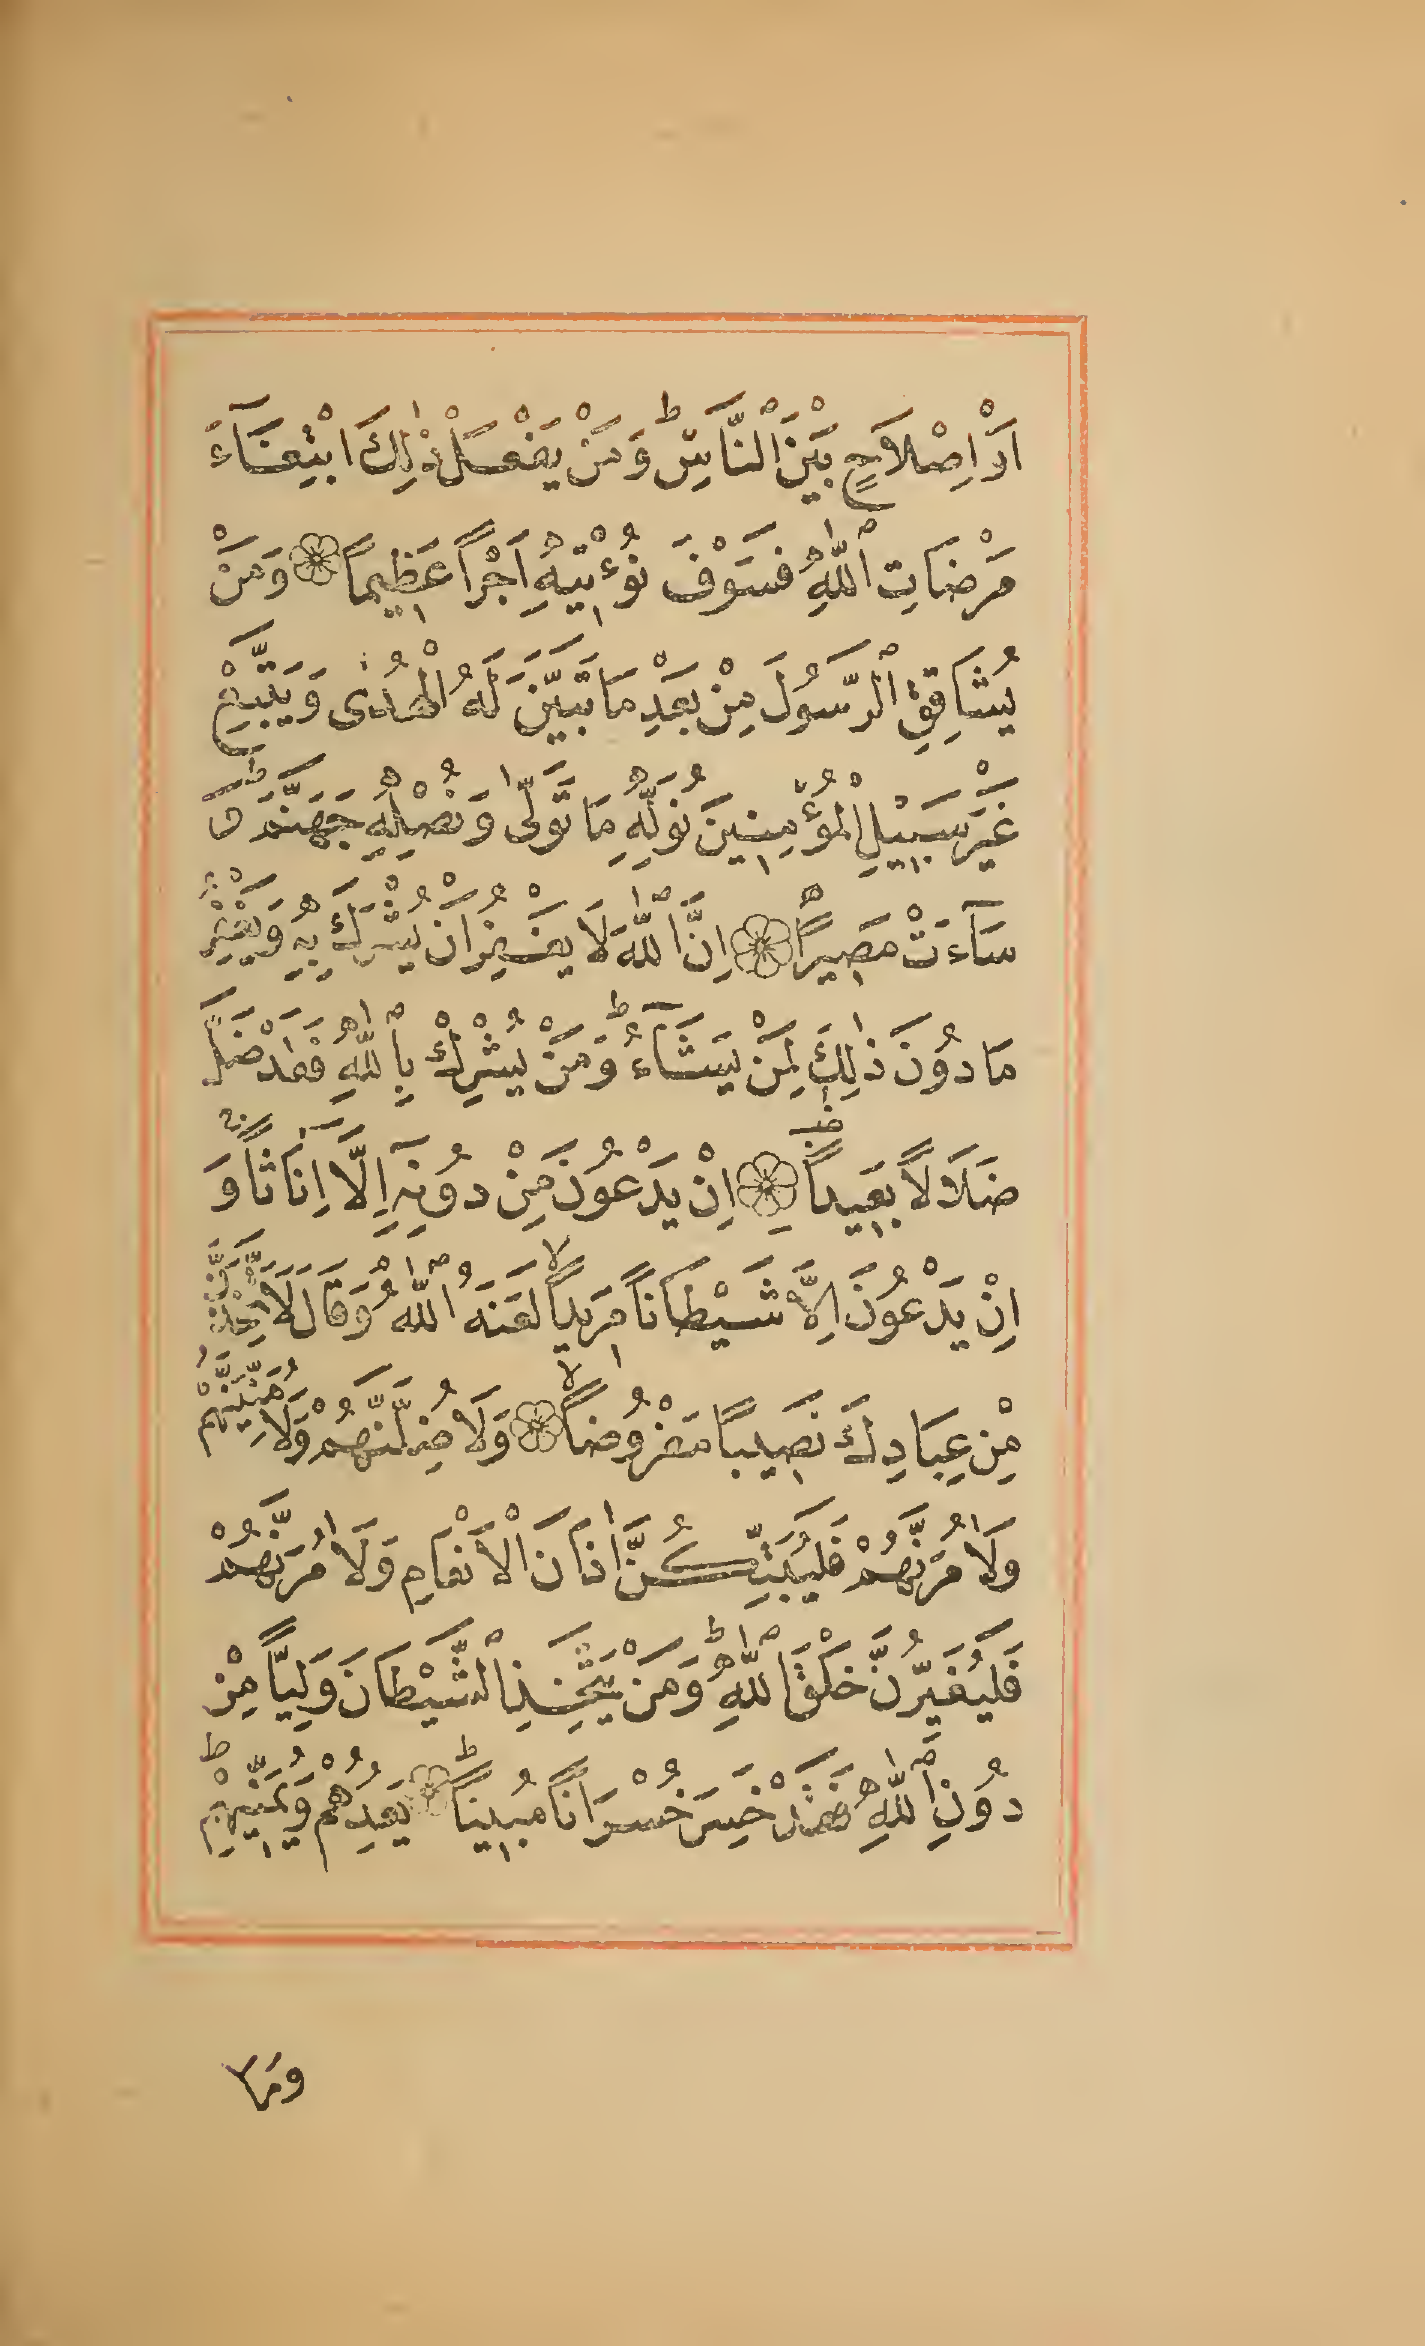 اَوْ اِصْلَاحٍ بَيْنَ النَّاسِ ط وَمَنْ يَفْعَلْ ذٰلِكَ ابْتِغَآءَ
مَرْضَاتِ اللّٰهِ فَسَوْفَ نُؤْتِيْهِ اَجْرًا عَظِيمًا وَمَنْ
يُشَاقِقِ الرَّسُولَ مِنْ بَعْدِ مَا تَبَيَّنَ لَهُ الْهُدٰى وَيَتَّبِعْ
غَيْرَ سَبِيْلِ الْمُؤْمِنِينَ نُوَلِّهِ مَا تَوَلّٰى وَنُصْلِهِ جَهَنَّمَ ط وَ
سَآءَتْ مَصِيرًا اِنَّ اللّٰهَ لَا يَغْفِرُ اَنْ يُشْرَكَ بِهِ وَيَغْفِرُ
مَا دُوْنَ ذٰلِكَ لِمَنْ يَشَآءُ ط وَمَنْ يُشْرِكْ بِاللّٰهِ فَقَدْ ضَلَّ
ضَلَالًا بَعِيدًا اِنْ يَدْعُوْنَ مِنْ دُوْنِهٖٓ اِلَّا اِنَاثًا وَ
اِنْ يَدْعُوْنَ اِلَّا شَيْطَانًا مَرِيدًا لا لَعَنَهُ اللّٰهُ وَقَالَ لَاَتَّخِذَنَّ
مِنْ عِبَادِكَ نَصِيبًا مَفْرُوْضًا لا وَلَاُضِلَّنَّهُمْ وَلَاُمَنِّيَنَّهُمْ
وَلَاٰمُرَنَّهُمْ فَلَيُبَتِّكُنَّ اٰذَانَ الْاَنْعَامِ وَلَاٰمُرَنَّهُمْ
فَلَيُغَيِّرُنَّ خَلْقَ اللّٰهِ ط وَمَنْ يَتَّخِذِ الشَّيْطَانَ وَلِيًّا مِنْ
دُوْنِ اللّٰهِ فَقَدْ خَسِرَ خُسْرَانًا مُبِينًا ط يَعِدُهُمْ وَيُمَنِّيْهِمْ ط
وَمَا